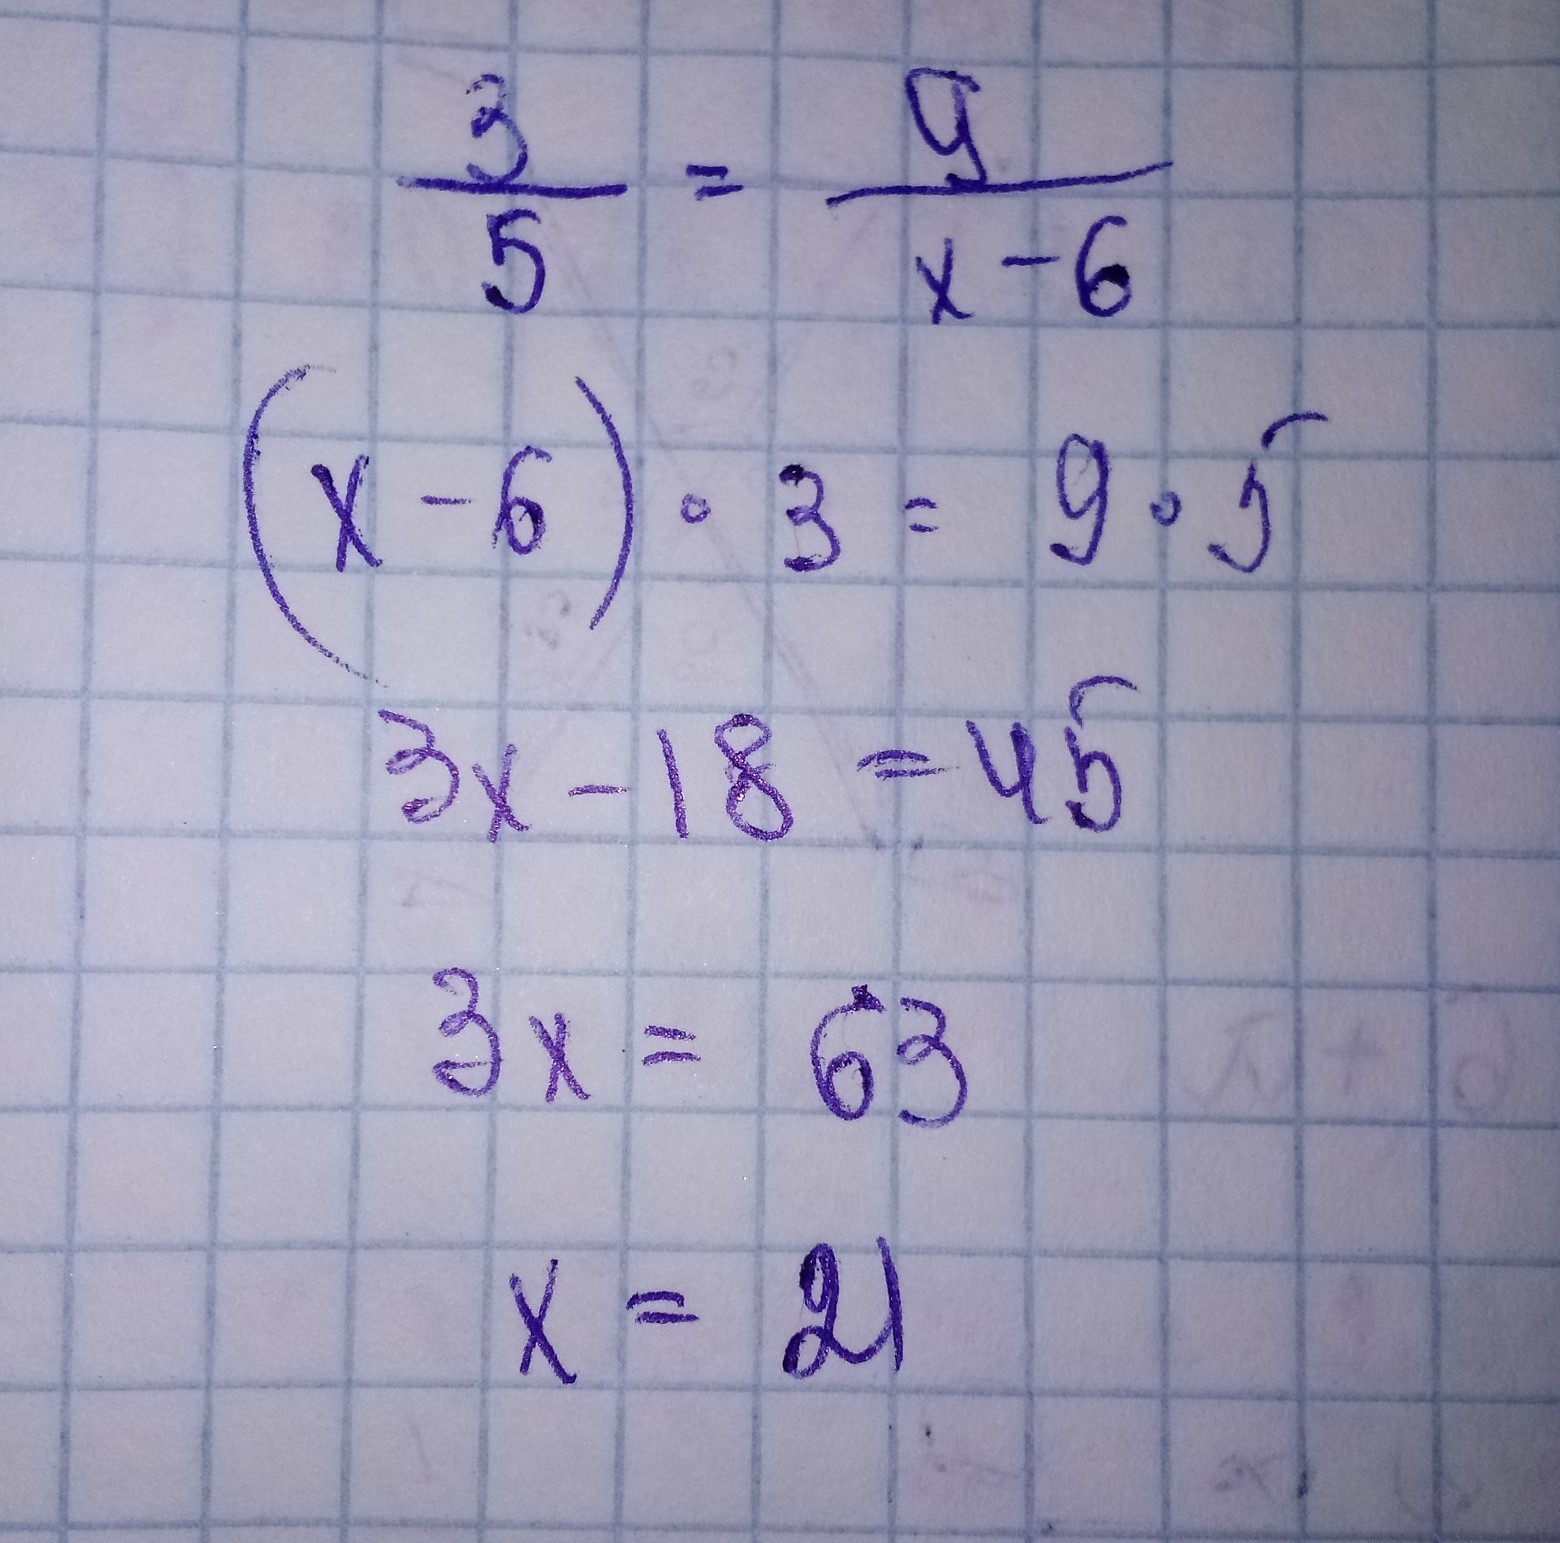 3/5 = 9/x-6
(x-6)∘3 = 9∘5
3x-18 = 45
3x = 63
x = 21